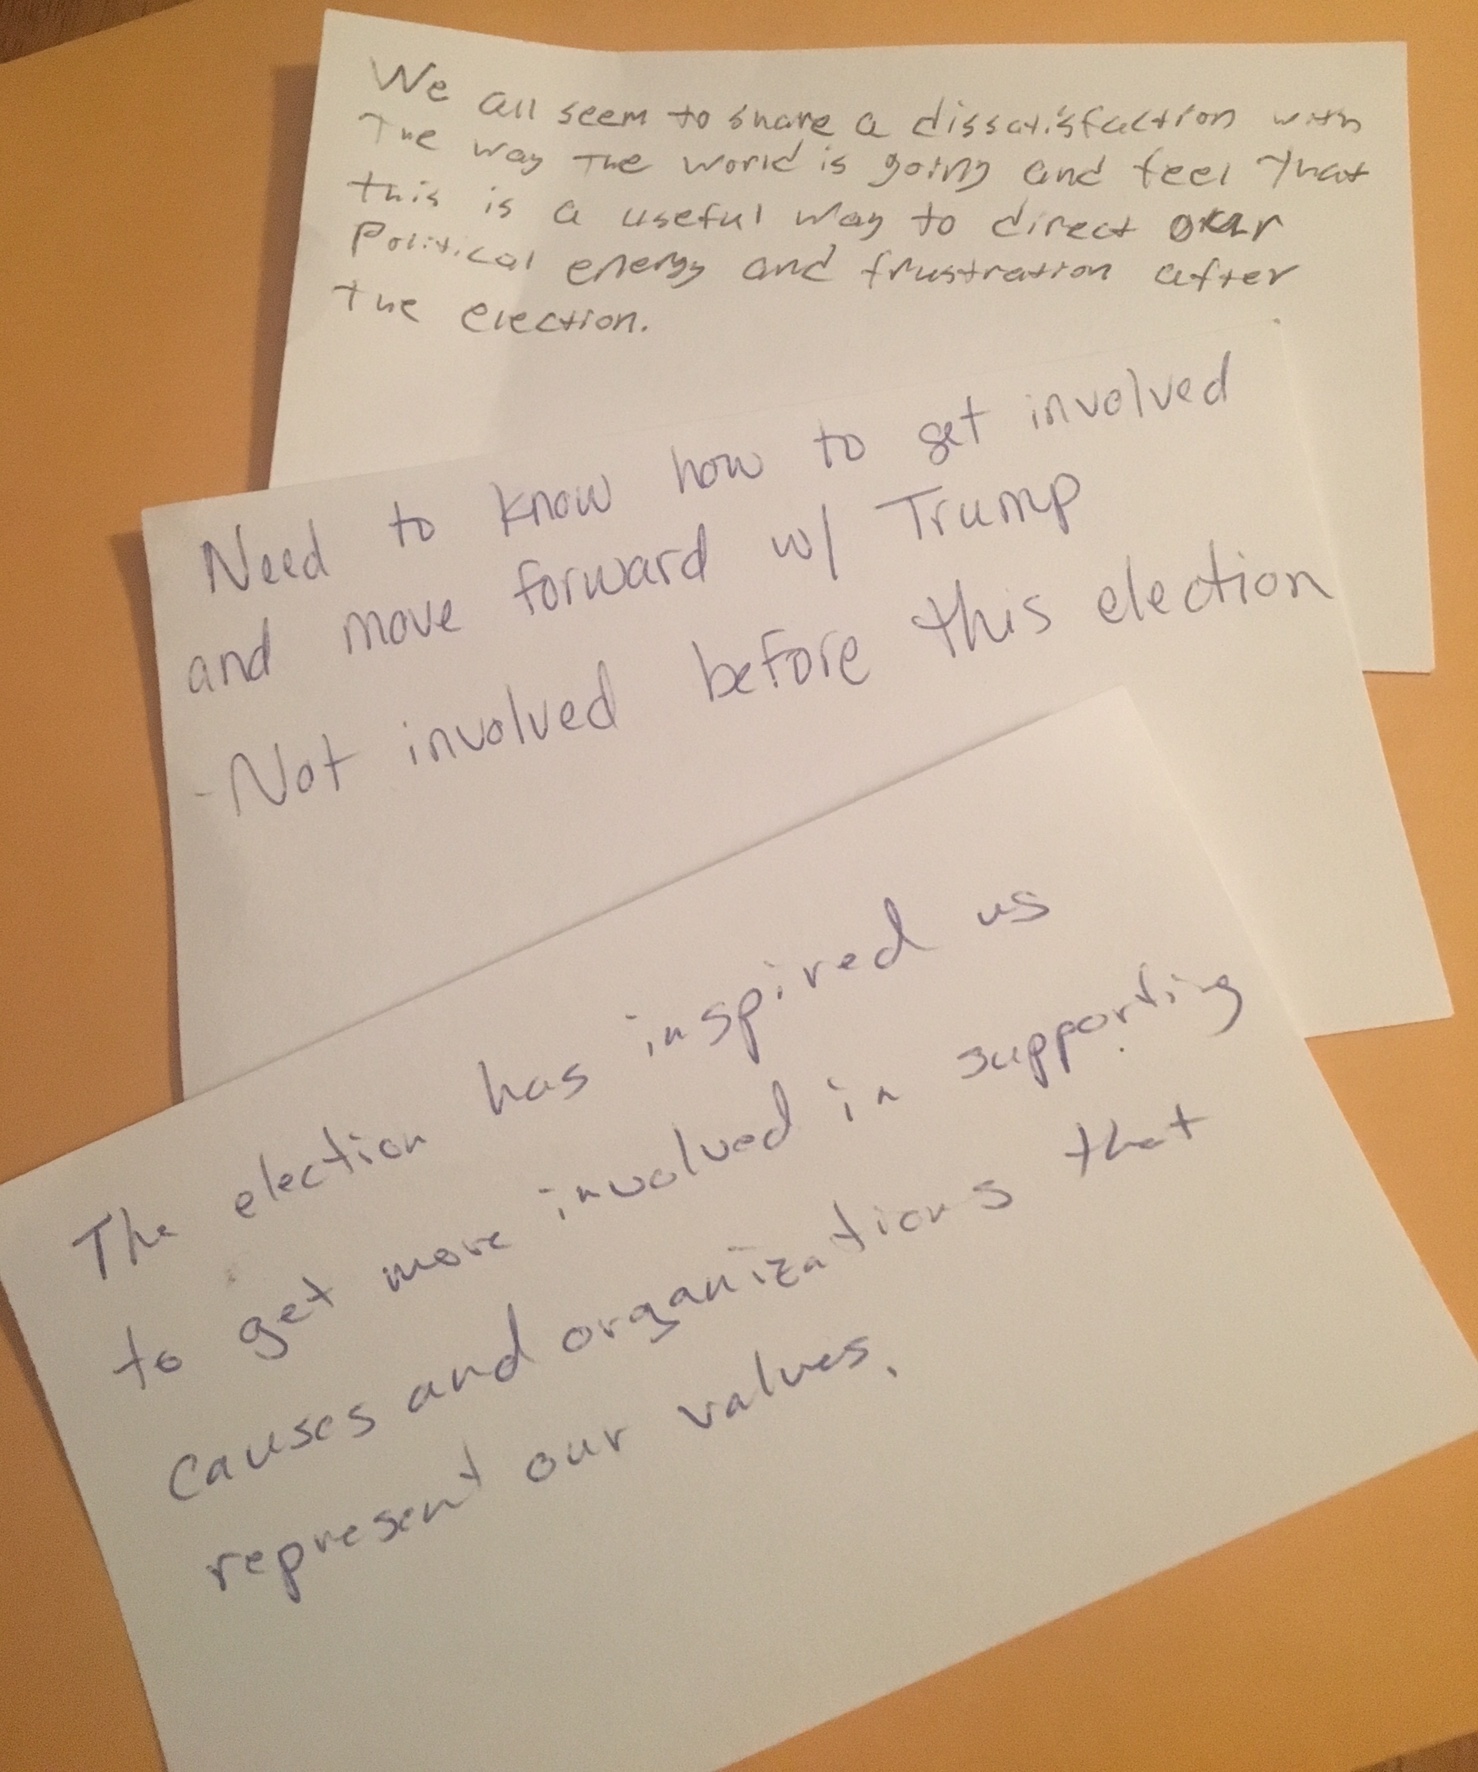 We all seem to share a dissatisfaction with
The way The world is going and feel That
this is a useful way to direct our
Political energy and frustration after
the election.
Need to know how to get involved
and move forward w/ Trump
- Not involved before this election
The election has inspired us
to get more involved in supporting
causes and organizations that
represent our values.